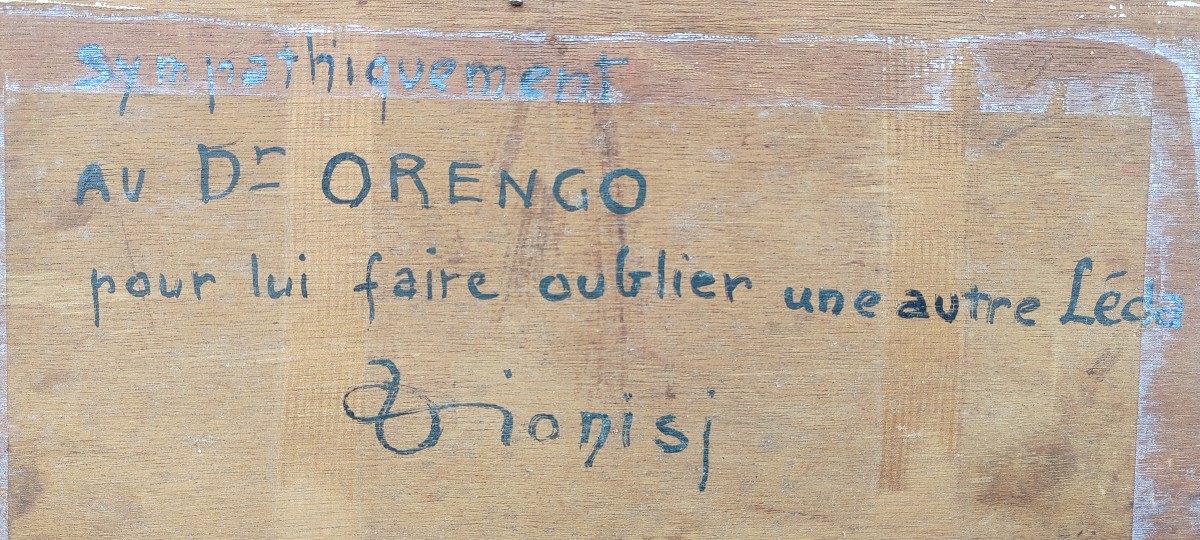 Sympathiquement
AU Dr ORENGO
pour lui faire oublier une autre Léda
Dionisj